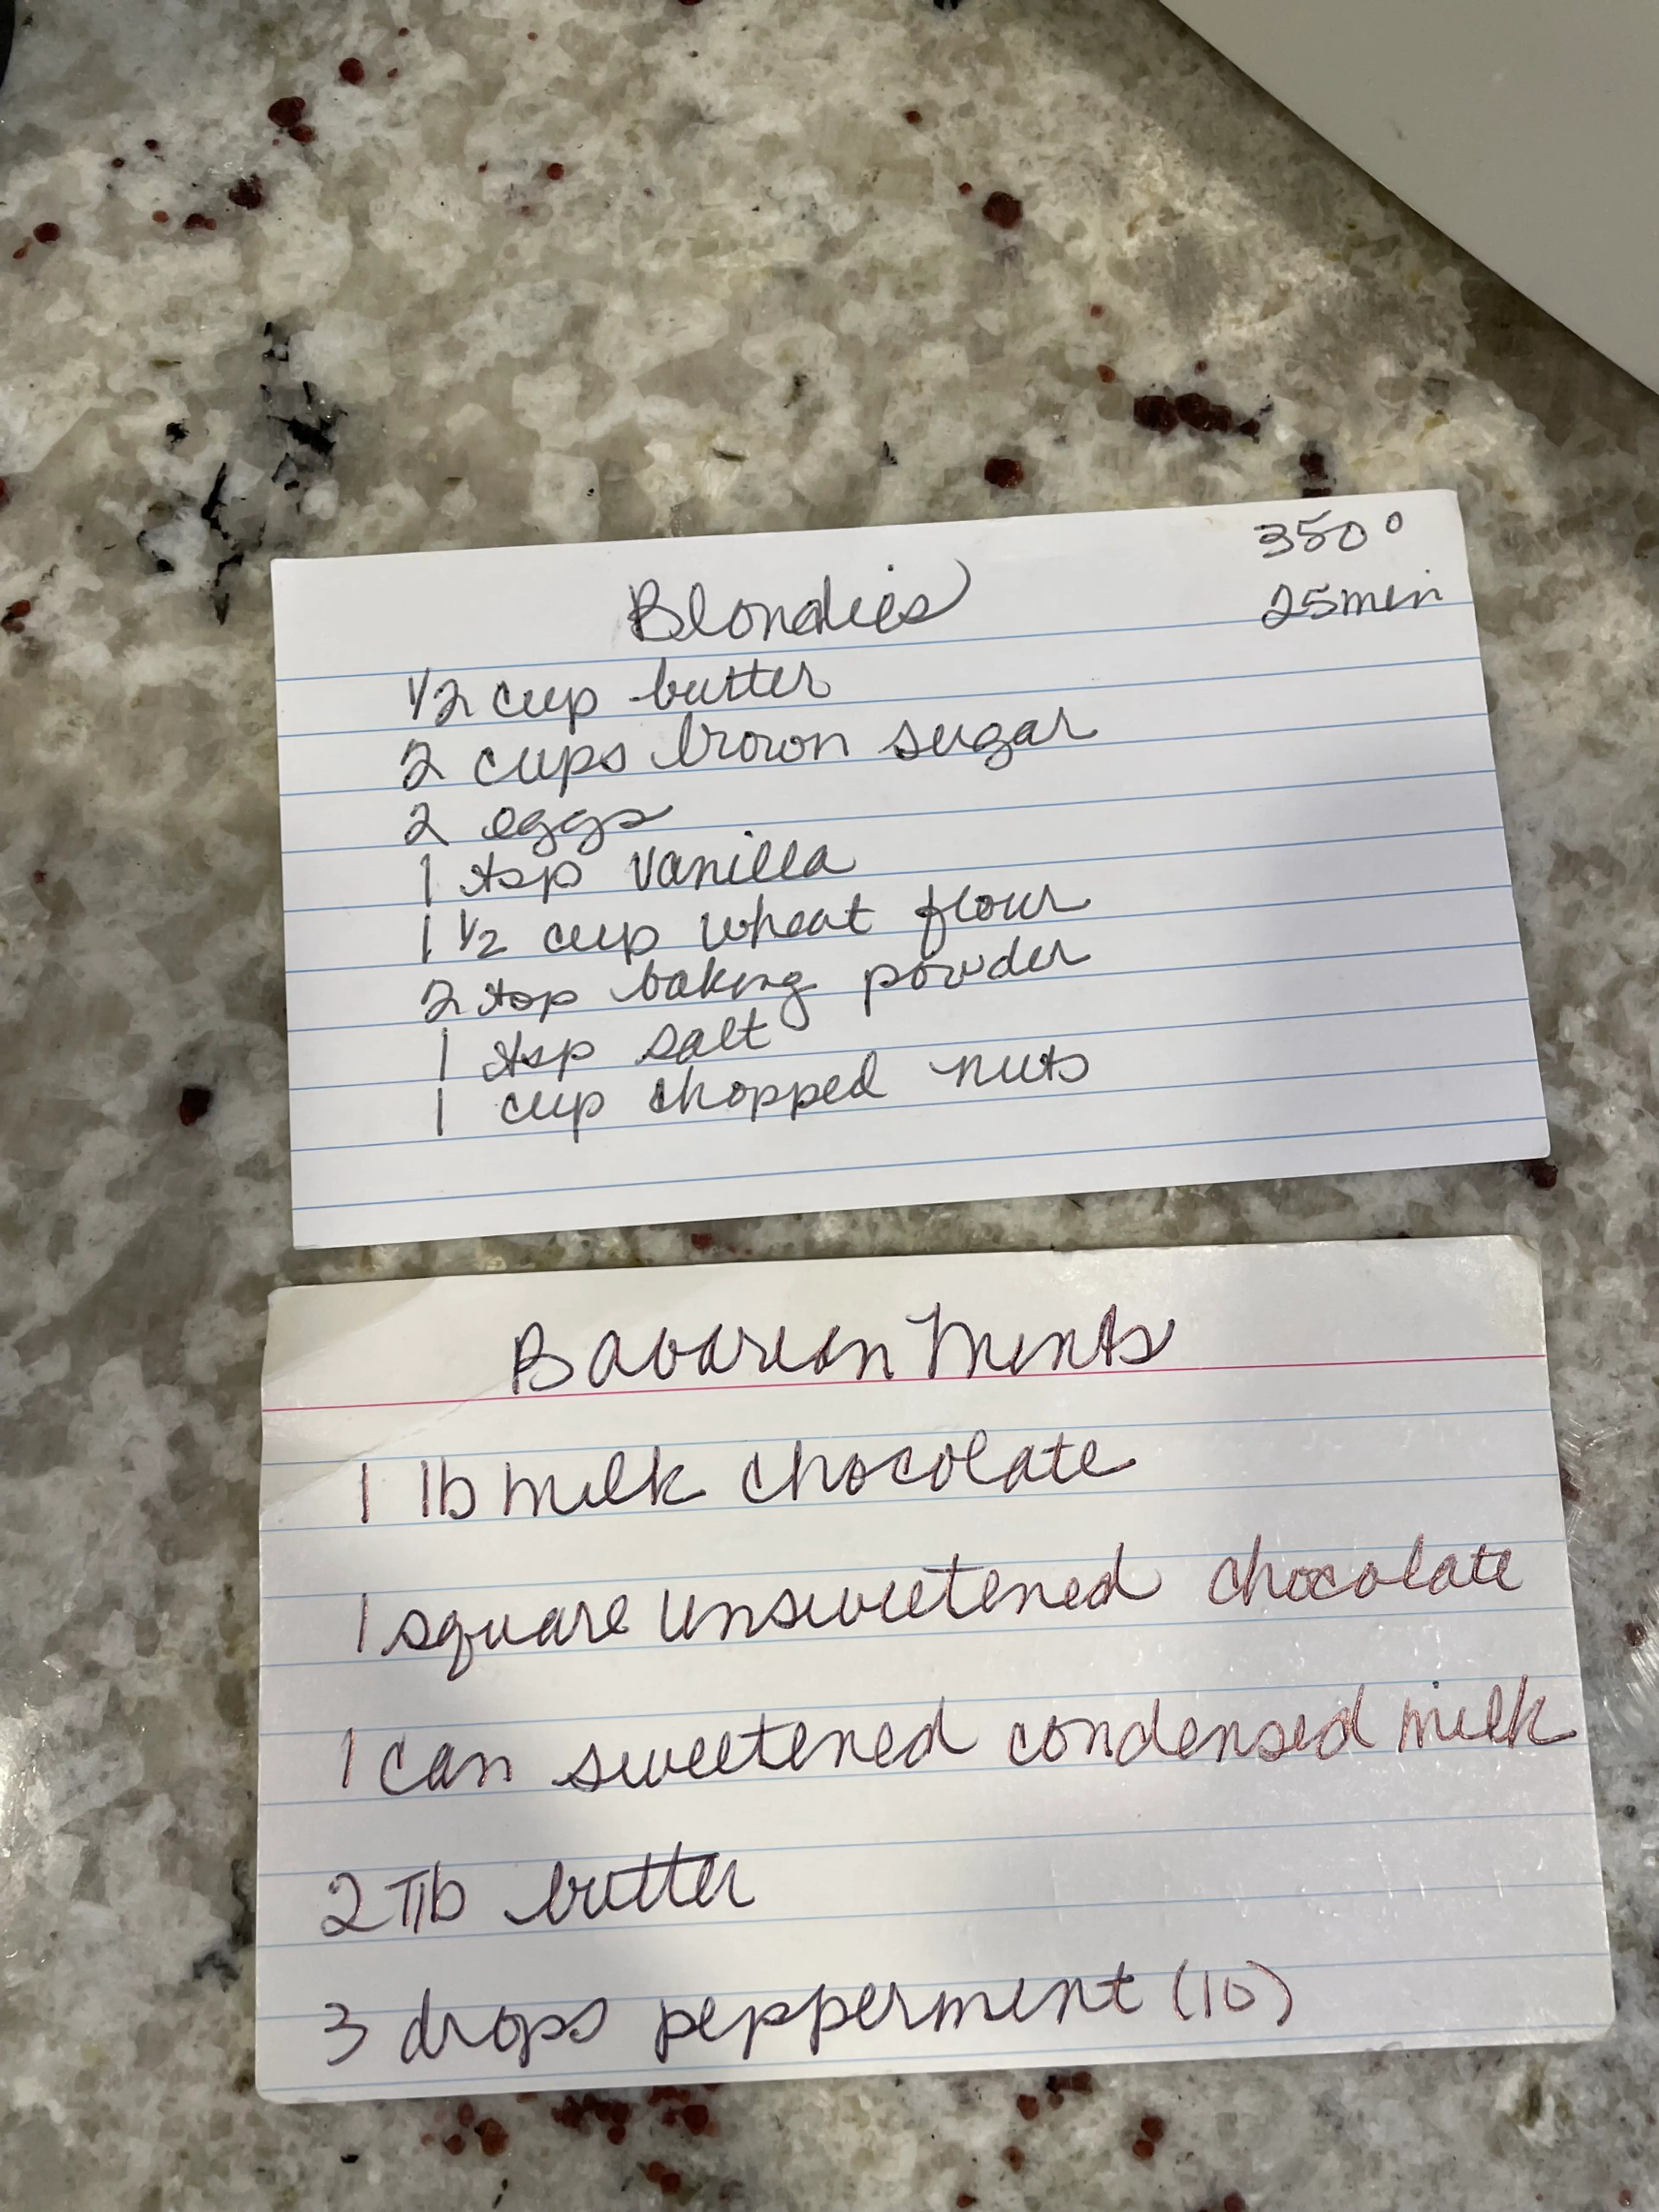 Blondies
350°
25 min
1/2 cup butter
2 cups brown sugar
2 eggs
1 tsp vanilla
1 1/2 cup wheat flour
2 tsp baking powder
1 tsp salt
1 cup chopped nuts
Bavarian Mints
1 lb milk chocolate
1 square unsweetened chocolate
1 can sweetened condensed milk
2 Tlb butter
3 drops peppermint (10)